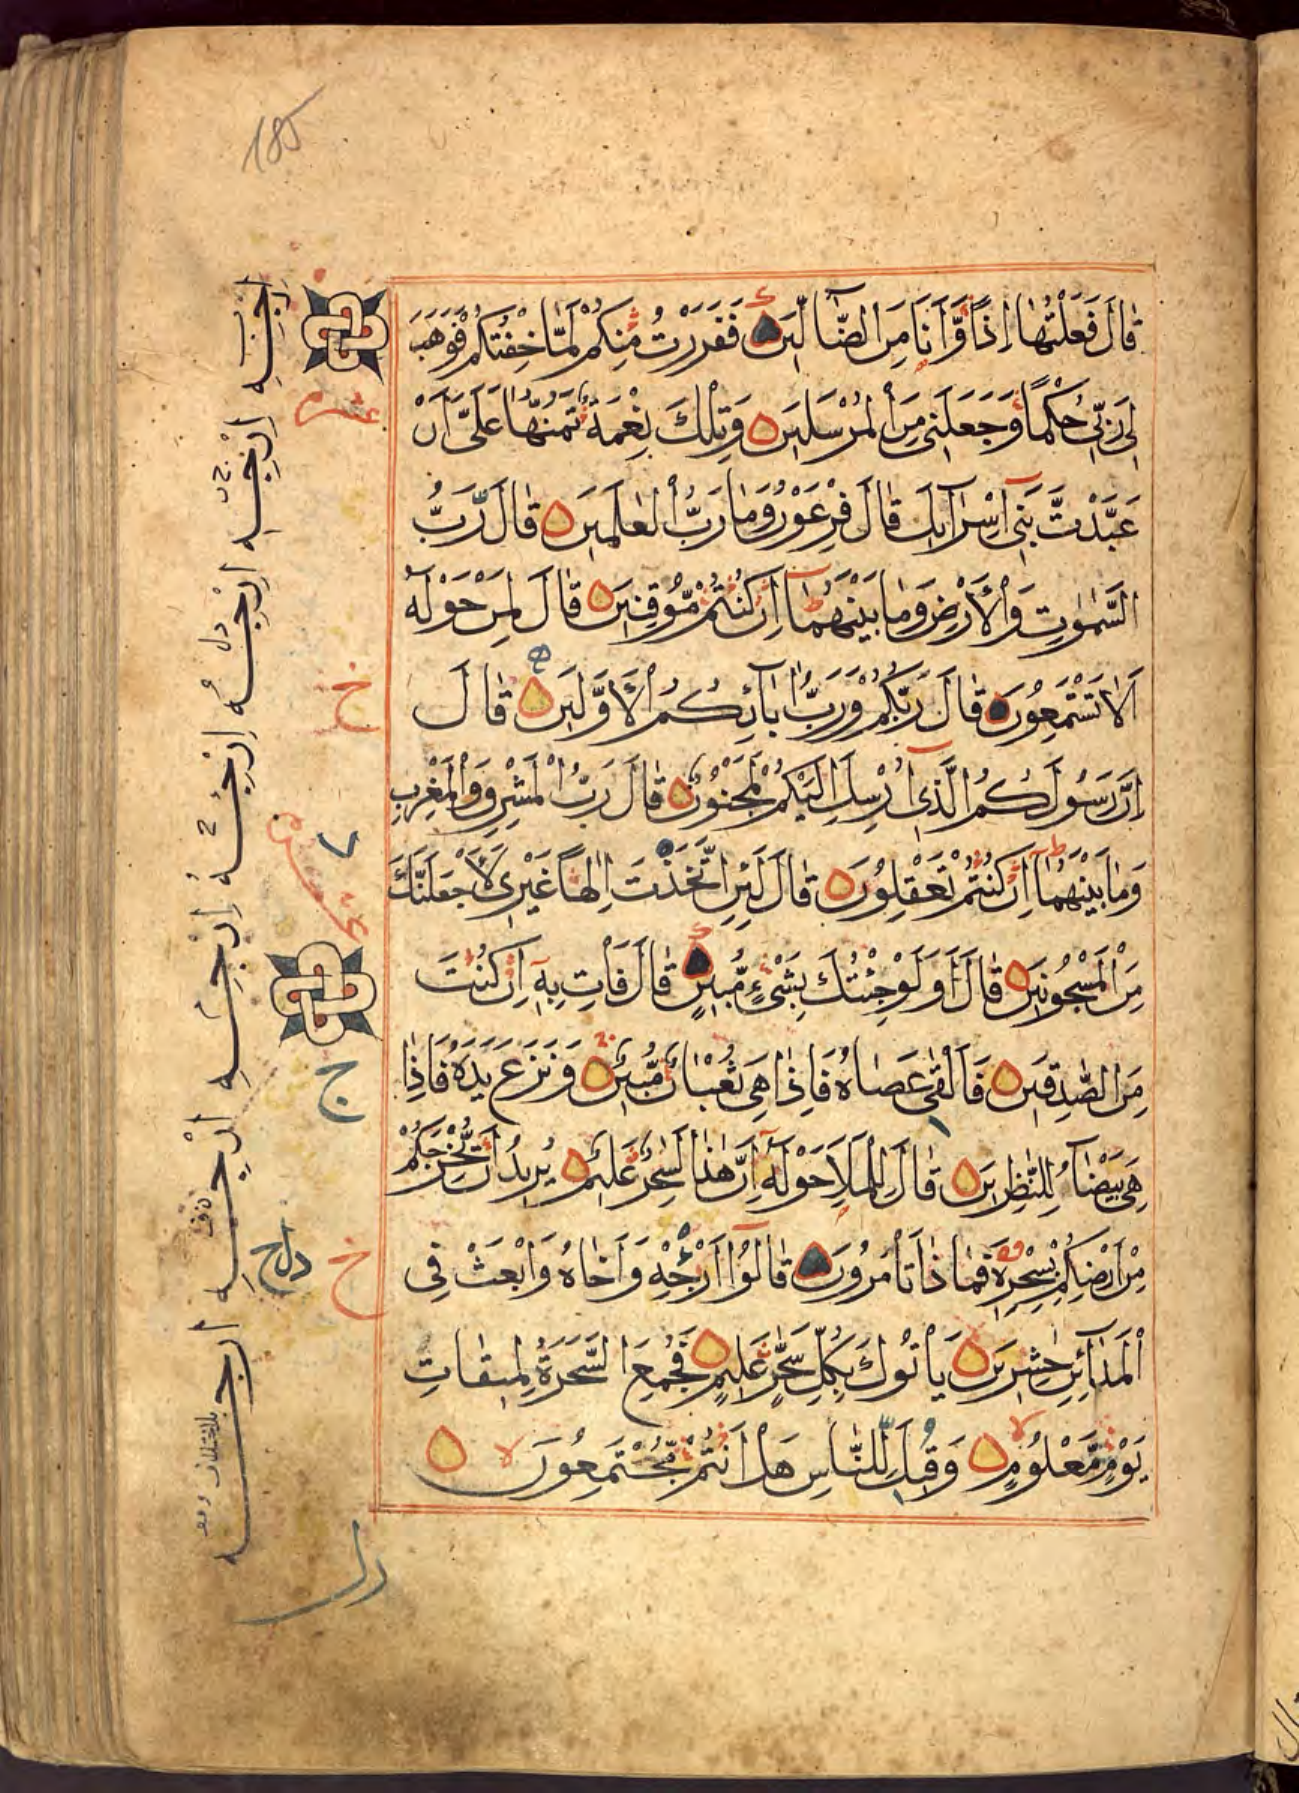 185
قَالَ فَعَلْتُهَا إِذًا وَّأَنَا مِنَ الضَّآلِّينَ فَفَرَرْتُ مِنْكُمْ لَمَّا خِفْتُكُمْ فَوَهَبَ
لِي رَبِّي حُكْمًا وَّجَعَلَنِي مِنَ الْمُرْسَلِينَ وَتِلْكَ نِعْمَةٌ تَمُنُّهَا عَلَيَّ أَنْ
عَبَّدْتَّ بَنِي إِسْرَآئِيلَ قَالَ فِرْعَوْنُ وَمَا رَبُّ الْعٰلَمِينَ قَالَ رَبُّ
السَّمٰوٰتِ وَالْأَرْضِ وَمَا بَيْنَهُمَا إِنْ كُنْتُمْ مُّوقِنِينَ قَالَ لِمَنْ حَوْلَهُ
أَلَا تَسْتَمِعُونَ قَالَ رَبُّكُمْ وَرَبُّ اٰبَآئِكُمُ الْأَوَّلِينَ قَالَ
إِنَّ رَسُولَكُمُ الَّذِي أُرْسِلَ إِلَيْكُمْ لَمَجْنُونٌ قَالَ رَبُّ الْمَشْرِقِ وَالْمَغْرِبِ
وَمَا بَيْنَهُمَا إِنْ كُنْتُمْ تَعْقِلُونَ قَالَ لَئِنِ اتَّخَذْتَ إِلٰهًا غَيْرِي لَأَجْعَلَنَّكَ
مِنَ الْمَسْجُونِينَ قَالَ أَوَلَوْ جِئْتُكَ بِشَيْءٍ مُّبِينٍ قَالَ فَأْتِ بِهِ إِنْ كُنْتَ
مِنَ الصّٰدِقِينَ فَأَلْقٰى عَصَاهُ فَإِذَا هِيَ ثُعْبَانٌ مُّبِينٌ وَنَزَعَ يَدَهُ فَإِذَا
هِيَ بَيْضَآءُ لِلنّٰظِرِينَ قَالَ لِلْمَلَإِ حَوْلَهُ إِنَّ هٰذَا لَسٰحِرٌ عَلِيمٌ يُرِيدُ أَنْ يُّخْرِجَكُمْ
مِنْ أَرْضِكُمْ بِسِحْرِهِ فَمَاذَا تَأْمُرُونَ قَالُوا أَرْجِهْ وَأَخَاهُ وَابْعَثْ فِي
الْمَدَآئِنِ حٰشِرِينَ يَأْتُوكَ بِكُلِّ سَحَّارٍ عَلِيمٍ فَجُمِعَ السَّحَرَةُ لِمِيقَاتِ
يَوْمٍ مَّعْلُومٍ وَقِيلَ لِلنَّاسِ هَلْ أَنْتُمْ مُّجْتَمِعُونَ
عشر
خ
ج
خ